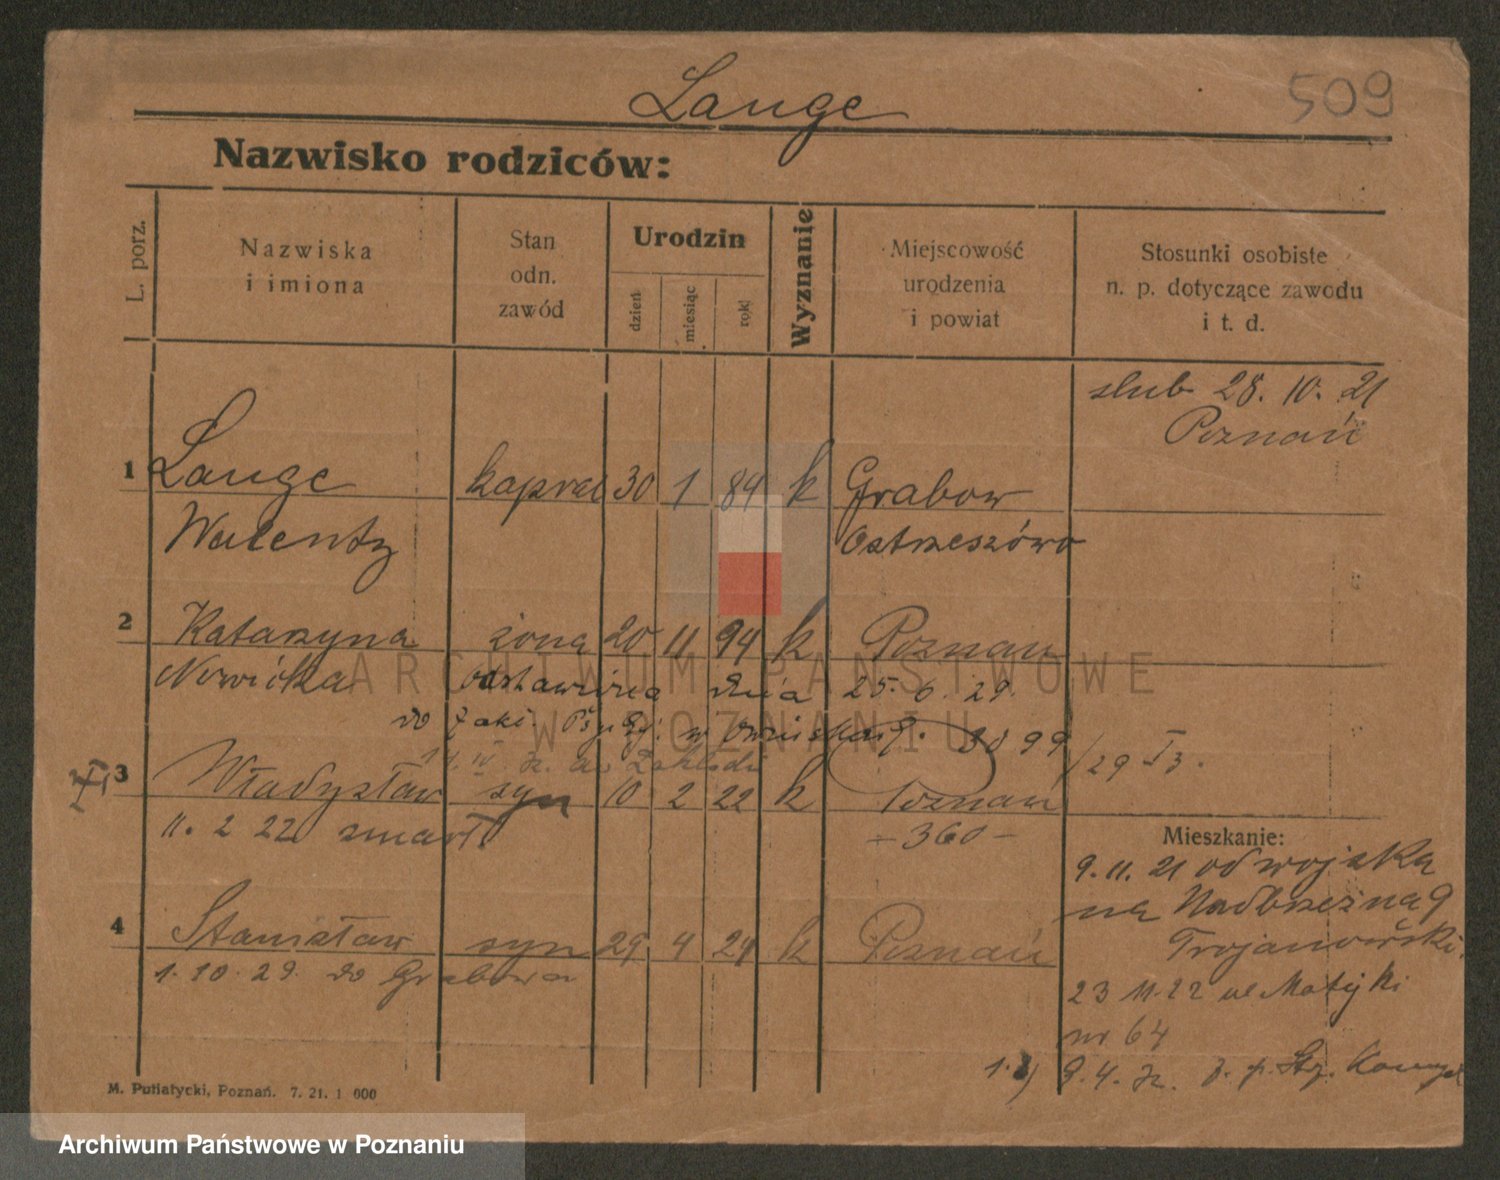 Lange
509
Nazwisko rodziców:
L. porz.
Nazwiska
i imiona
Stan
odn.
zawód
Urodzin
dzień
miesiąc
rok
Wyznanie
Miejscowość
urodzenia
i powiat
Stosunki osobiste
n. p. dotyczące zawodu
i t. d.
slub 28. 10. 21
Poznań
1 Lange kapral 30 1 89 k Grabow
Walenty Ostrzeszówo
2 Katarzyna żona 20 11 94 k Poznań
Nowicka odstawiona dnia 25. 6. 29.
do Zakł. Psych. w
/29
3 Władysław syn 10 2 22 k Poznań
11. 2 22 zmarł - 360 -
Mieszkanie:
9. 11. 21 od wojska
na Nadbrzeżna 9
Trojanowski.
4 Stanisław syn 29 4 24 k Poznań
1. 10. 29. do Grabowa
23 11. 22 ul Matejki
nr 64
9. 4.
M. Putiatycki, Poznań. 7. 21. 1 000
ARCHIWUM PAŃSTWOWE
W POZNANIU
Archiwum Państwowe w Poznaniu